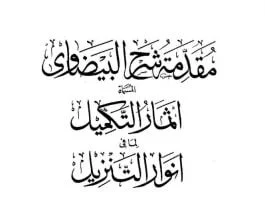 مقدمة شرح البيضاوى
المسماة
اثمار التكميل
لما فى
انوار التنزيل